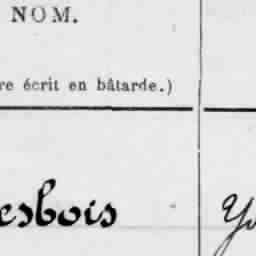 NOM.
re écrit en bâtarde.)
esbois Yv